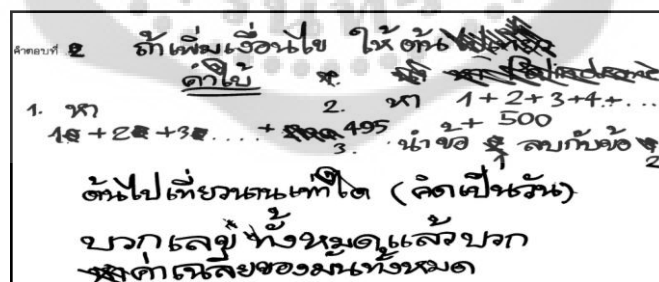 คำตอบที่ 2 ถ้าเพิ่มเงื่อนไข ให้ต้น
ค่าใบ้
1. หา 2. หา 1+2+3+4+...
18+28+38.....+ 495 + 500
3. นำข้อ 1 ลบกับข้อ 2
ต้นไปเที่ยวนานเท่าใด (คิดเป็นวัน)
บวกเลขทั้งหมดแล้วบวก
ค่าเฉลี่ยของมันทั้งหมด